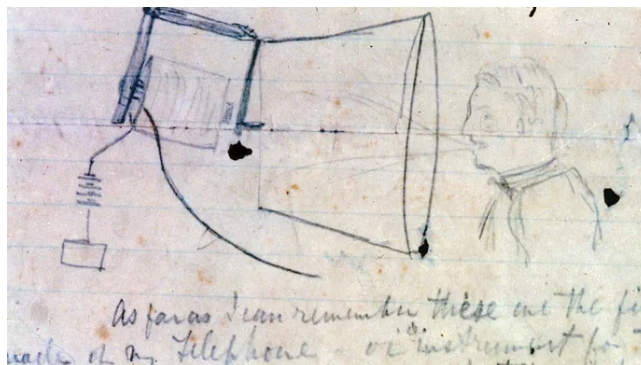 As far as I can remember these are the fi
made of my Telephone - or instrument for